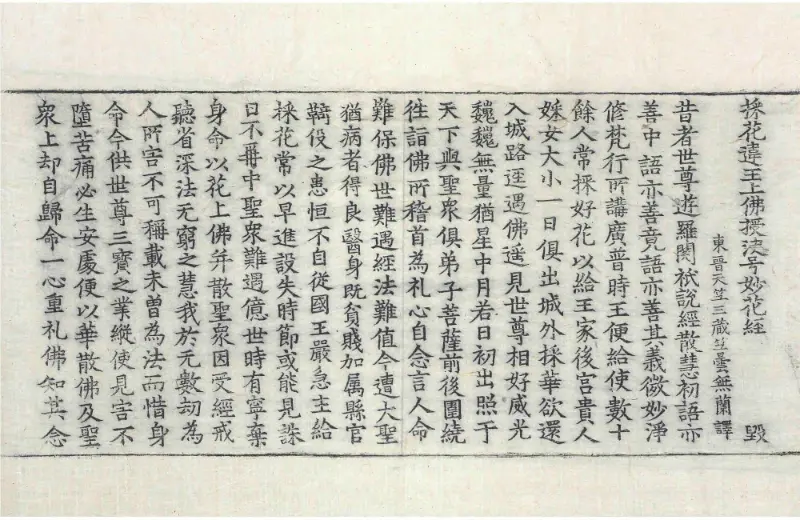 採花違王上佛授決号妙花經 毀
東晉天竺三藏竺曇無蘭譯
昔者世尊遊羅閱祇說經散慧初語亦
善中語亦善竟語亦善其義微妙淨
修梵行所講廣普時王便給使數十
餘人常採好花以給王家後宮貴人
婇女大小一日俱出城外採華欲還
入城路逕遇佛遥見世尊相好威光
巍巍無量猶星中月若日初出照于
天下與聖衆俱弟子菩薩前後圍繞
往詣佛所稽首為礼心自念言人命
難保佛世難遇經法難值今遭大聖
猶病者得良醫身既貧賤加属縣官
羇役之患恒不自從國王嚴急主給
採花常以早進設失時節或能見誅
曰不冊中聖衆難遇億世時有寧棄
身命以花上佛并散聖衆因受經戒
聽省深法无窮之慧我於无數劫為
人所害不可稱載未曽為法而惜身
命今供世尊三寳之業縱使見害不
墮苦痛必生安處便以華散佛及聖
衆上却自歸命一心重礼佛知其念